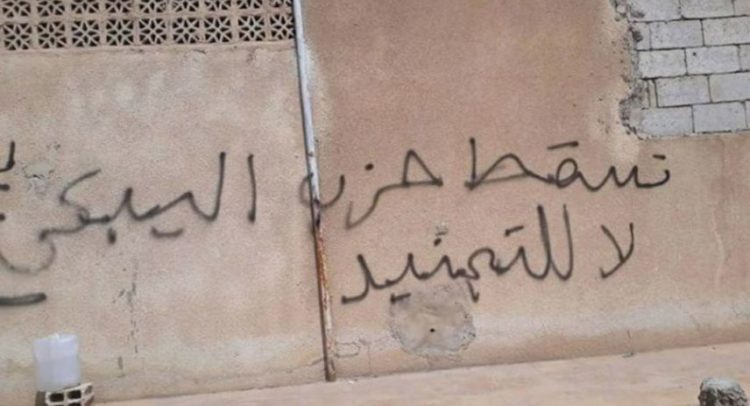 تسقط حزب البيبكي
لا للتجنيد